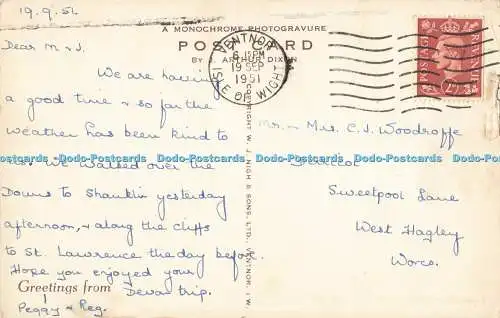 19.9.51
A MONOCHROME PHOTOGRAVURE
POST CARD
BY J. ARTHUR DIXON
VENTNOR
6 15 PM
19 SEP
1951
ISLE OF WIGHT
POSTAGE
REVENUE
Dear M & J.
We are having
a good time & so far the
weather has been kind to
us. We walked over the
Downs to Shanklin yesterday
afternoon, & along the cliffs
to St. Lawrence the day before.
Hope you enjoyed your
Greetings from
Devon trip.
Peggy & Reg.
COPYRIGHT W. J. NIGH & SONS, LTD., VENTNOR, I.W.
Mr. & Mrs. C. J. Woodroffe
Sweetpool Lane
West Hagley
Worcs.
Dodo-Postcards Dodo-Postcards Dodo-Postcards Dodo-Postcards Dodo-Postcards Dodo-Postcards